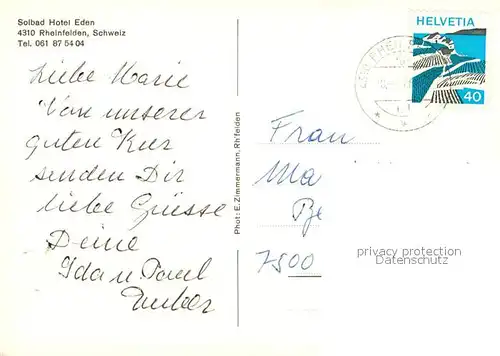 Solbad Hotel Eden
4310 Rheinfelden, Schweiz
Tel. 061 87 54 04
Liebe Marie
Von unserer
guten Kur
senden Dir
liebe Grüsse
Deine
Ida u. Paul
Phot: E. Zimmermann, Rhfelden
HELVETIA
40
Frau
Ma
Be
7500
privacy protection
Datenschutz